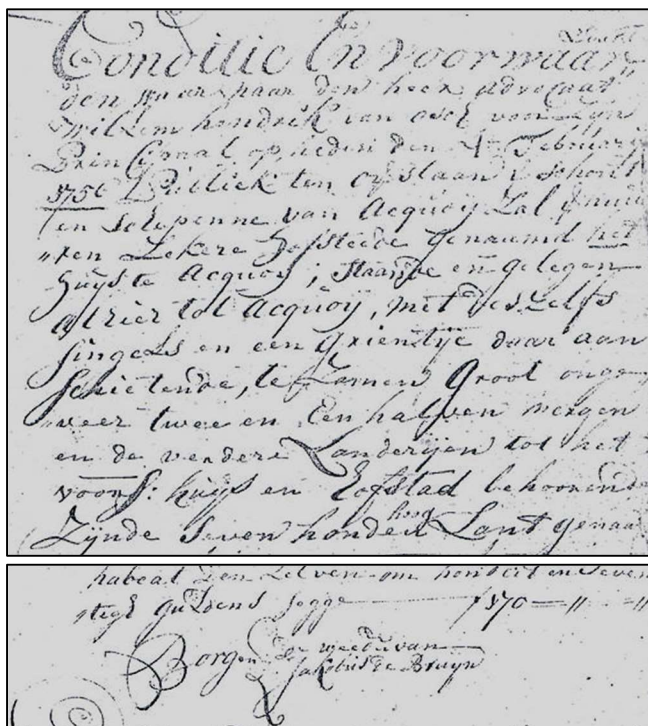 Conditie En voorwaar„
den waar naar den heer Advocaat
Willem hendrik van Osch voor zijn
Principaal op heden den 4e Februarij
1756 Publiek ten overstaan v schout
en Schepenne van Acquoij Zal
een Zekere Hofsteede genaamd het
huijs te Acquoij, staande en gelegen
alhier tot Acquoij, met deszelfs
singels en een Grientje daar aan
schietende, te zamen Groot onge„
veer twee en Een halven mergen
en de verdere Landerijen tot het
voors: huijs en Hofstad behoorende
Zijnde Seven hondert hond Lant genaa
habeat den Zelven om hondert en seven
stegh guldens segge ƒ 170 — „ — „
Borgen de weedu van
Jakobus de Bruijn